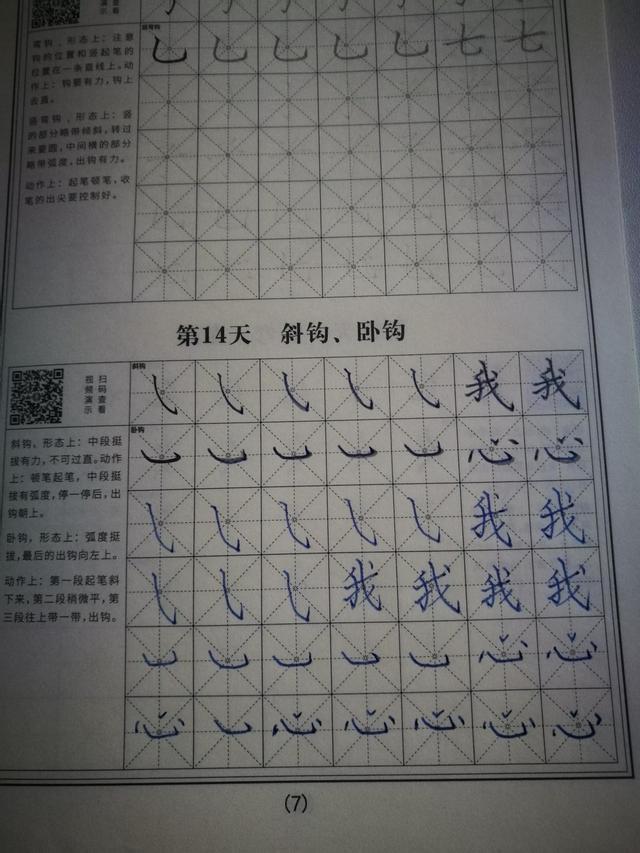 竖弯钩
乚 乚 乚 乚 乚 七 七
弯钩，形态上：注意
钩的位置和竖起笔的
位置在一条直线上。动
作上：钩要有力，钩上
去直。
竖弯钩，形态上：竖
的部分略带倾斜，转过
来要圆，中间横的部分
略带弧度，出钩有力。
动作上：起笔顿笔，收
笔的出尖要控制好。
第14天 斜钩、卧钩
扫码查看
视频演示
斜钩，形态上：中段挺
拔有力，不可过直。动作
上：顿笔起笔，中段挺
拔有弧度，停一停后，出
钩朝上。
卧钩，形态上：弧度挺
拔，最后的出钩向左上。
动作上：第一段起笔斜
下来，第二段稍微平，第
三段往上带一带，出钩。
斜钩
㇂ ㇂ ㇂ ㇂ ㇂ 我 我
卧钩
㇃ ㇃ ㇃ ㇃ ㇃ 心 心
㇂ ㇂ ㇂ ㇂ ㇂ 我 我
㇂ ㇂ ㇂ 我 我 我 我
㇃ ㇃ ㇃ ㇃ ㇃ 心 心
心 ㇃ 心 心 心 心 心
(7)